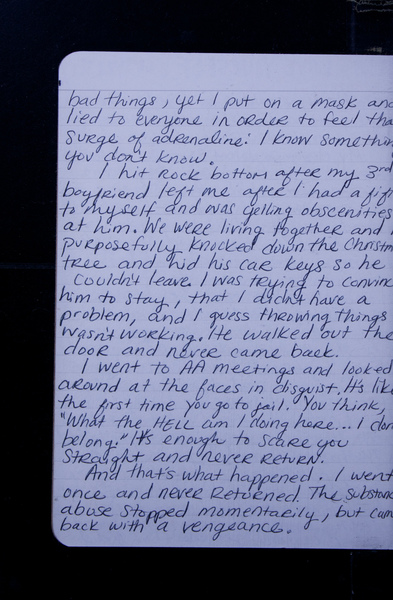 bad things, yet I put on a mask and
lied to everyone in order to feel tha
surge of adrenaline: I know somethin
you don't know.
I hit rock bottom after my 3rd
boyfriend left me after I had a fif
to myself and was yelling obscenities
at him. We were living together and I
purposefully knocked down the Christm
tree and hid his car keys so he
couldn't leave. I was trying to convinc
him to stay, that I didn't have a
problem, and I guess throwing things
wasn't working. He walked out the
door and never came back.
I went to AA meetings and looked
around at the faces in disgust. It's like
the first time you go to jail. You think,
"What the HELL am I doing here... I don
belong." It's enough to scare you
straight and never return.
And that's what happened. I went
once and never returned. The substanc
abuse stopped momentarily, but cam
back with a vengeance.